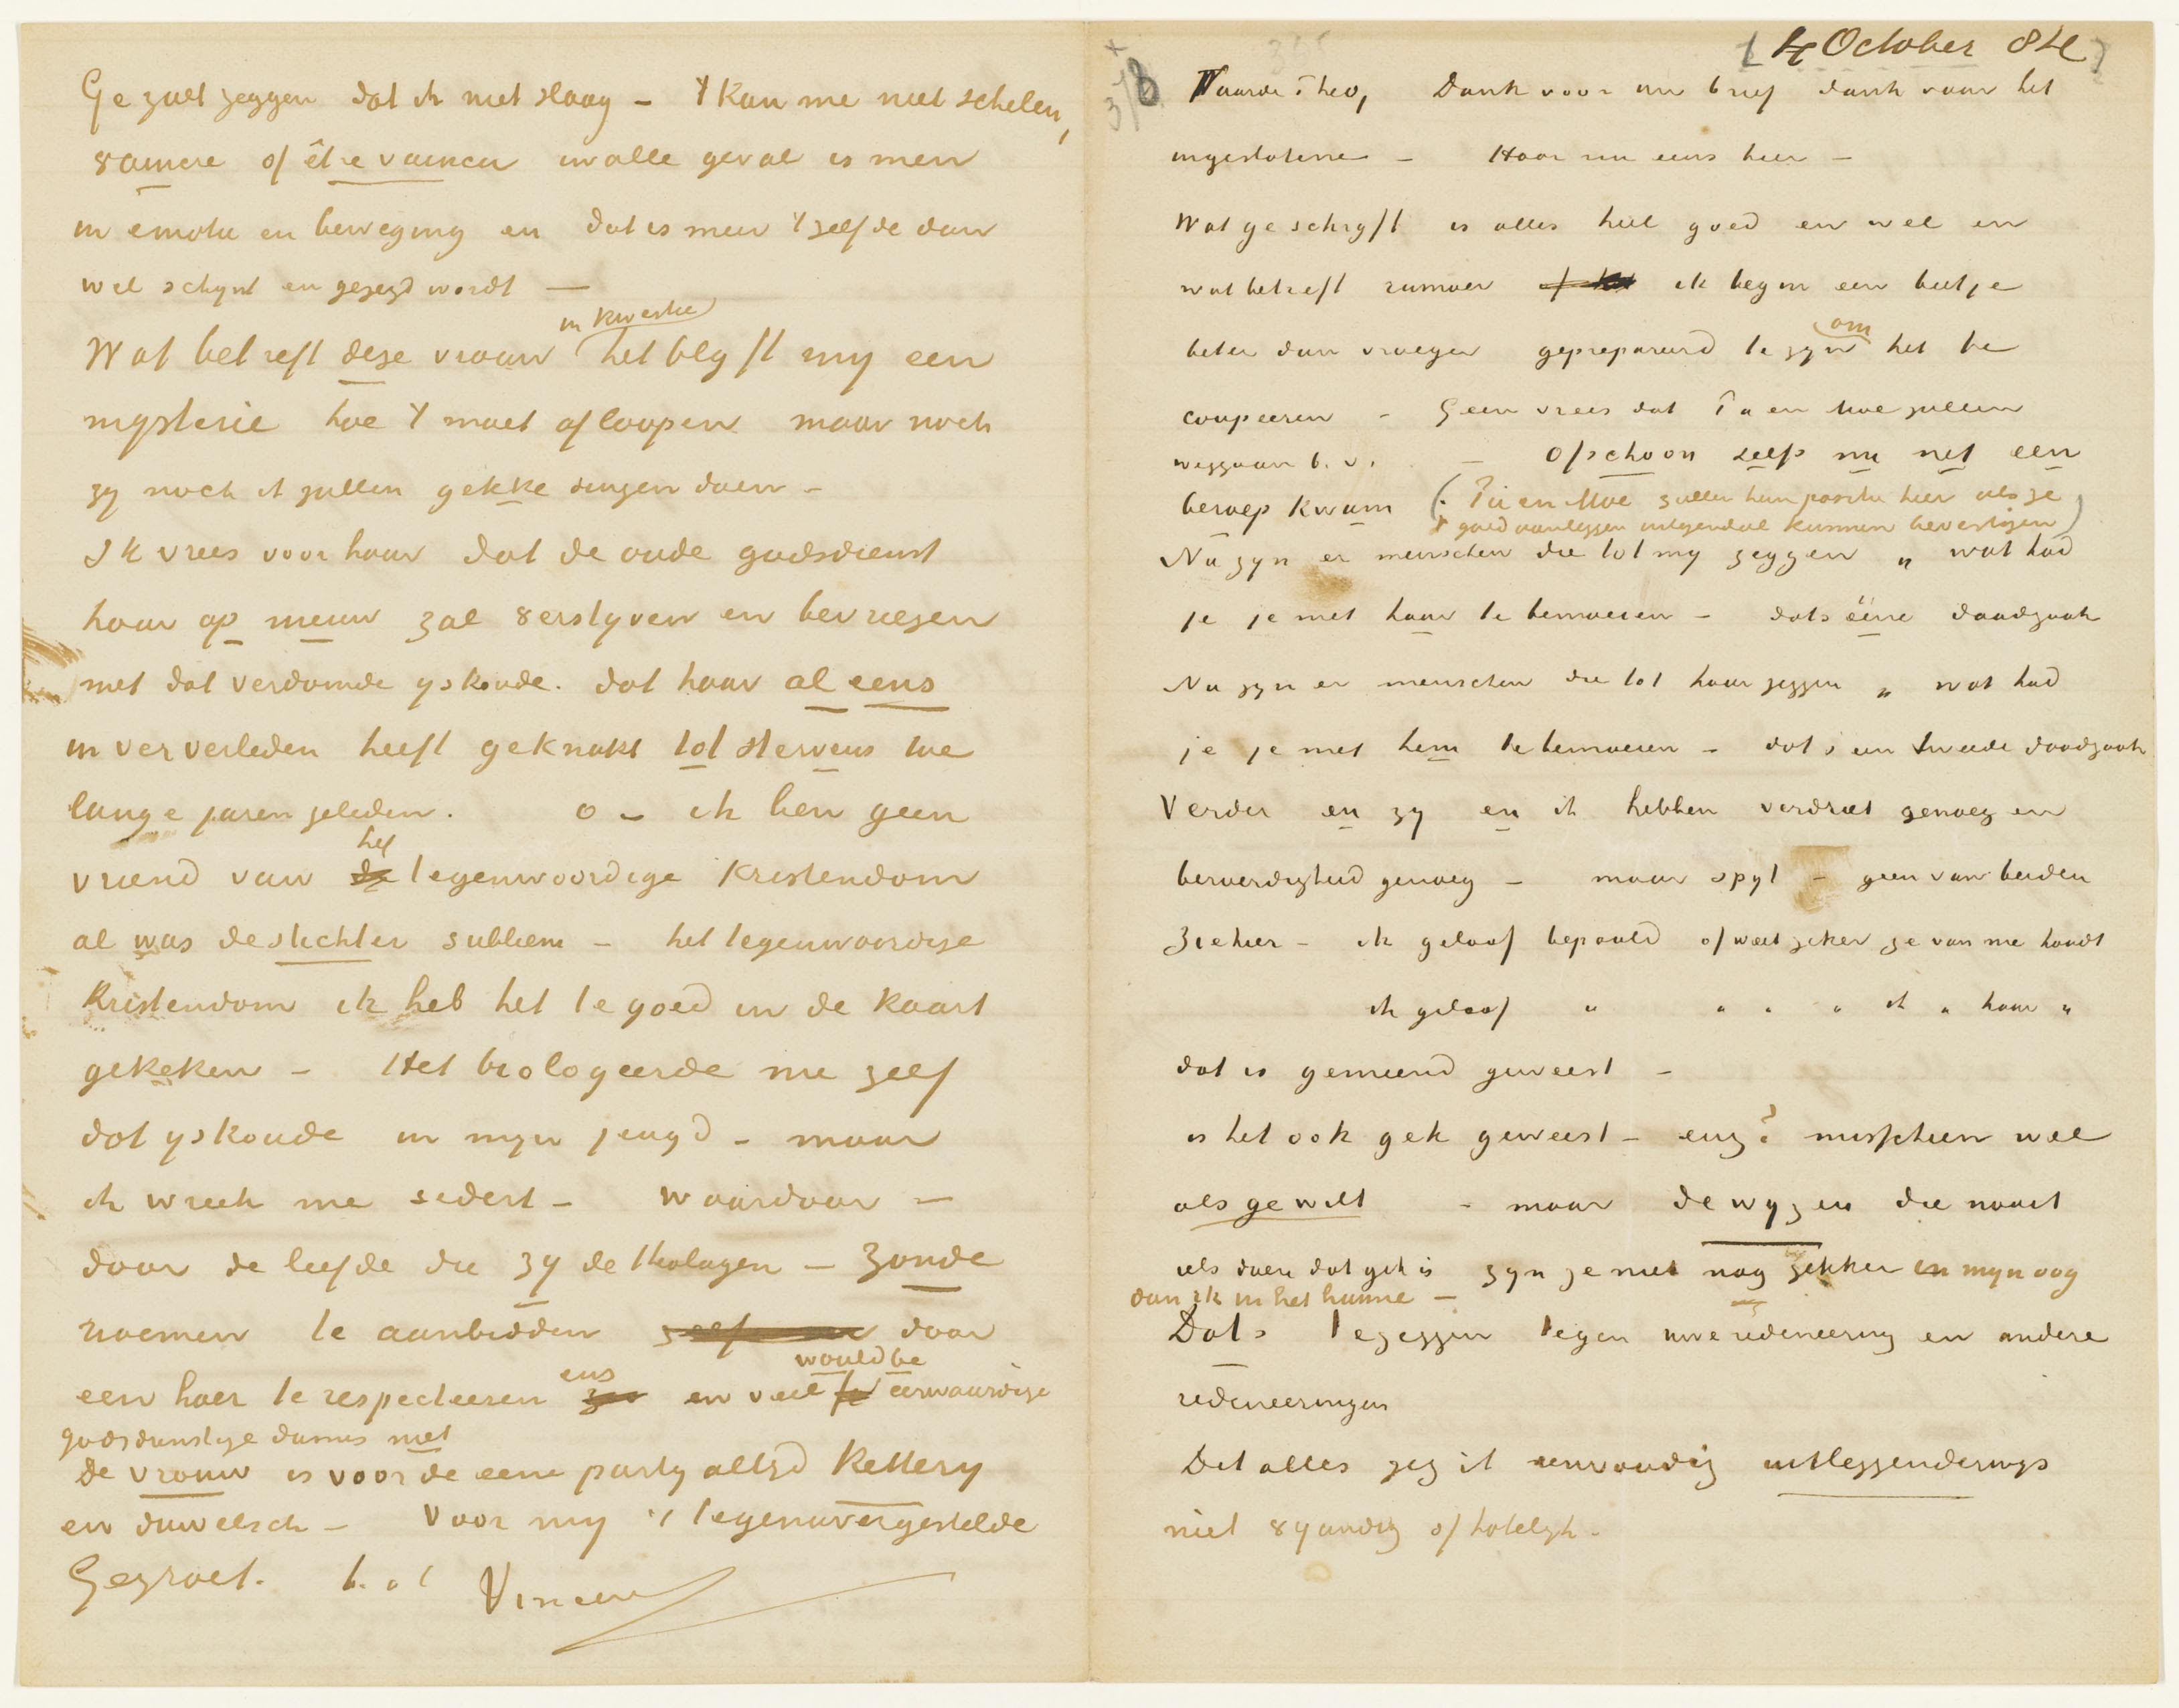 Ge zult zeggen dat ik niet slaag – 't kan me niet schelen,
vaincre of être vaincu in alle geval is men
in emotie en beweging en dat is meer 't zelfde dan
wel schynt en gezegd wordt —
in kwestie
Wat betreft deze vrouw het blyft my een
mysterie hoe 't moet afloopen maar noch
zy noch ik zullen gekke dingen doen –
Ik vrees voor haar dat de oude godsdienst
haar op nieuw zal verstyven en bevriezen
met dat verdomde yskoude. dat haar al eens
in ver verleden heeft geknakt tot stervens toe
lange jaren geleden. o – ik ben geen
het
vriend van de tegenwoordige Kristendom
al was de stichter subliem – het tegenwoordige
Kristendom ik heb het te goed in de kaart
gekeken – Het biologeerde me zelf
dat yskoude in myn jeugd – maar
ik wreek me sedert – waardoor –
door de liefde die zy de theologen – zonde
noemen te aanbidden door
would be
een hoer te respecteeren ens en veel eerwaardige
godsdienstige dames niet
De vrouw is voor de eene party altyd Kettery
en duivelsch – Voor my 't tegenovergestelde
Gegroet. t. a t Vincent
[4 October 84]
378 Waarde Theo, Dank voor uw brief dank voor het
ingeslotene – Hoor nu eens hier –
Wat ge schryft is alles heel goed en wel en
wat betreft rumoer ik begin een beetje
om
beter dan vroeger geprepareerd te zyn het te
coupeeren – Geen vrees dat Pa en Moe zullen
weggaan b.v. – Ofschoon zelfs nu net een
beroep kwam (: Pa en Moe zullen hun positie hier als ze
't goed aanleggen integendeel kunnen bevestigen)
Nu zyn er menschen die tot my zeggen „ wat had
je je met haar te bemoeien – dat's ééne daadzaak
Nu zyn er menschen die tot haar zeggen „ wat had
je je met hem te bemoeien – dat's een tweede daadzaak
Verder en zy en ik hebben verdriet genoeg en
beroerdigheid genoeg – maar spyt – geen van beiden
Ziehier – ik geloof bepaald of weet zeker ze van me houdt
ik geloof " " " " ik " haar "
dat is gemeend geweest –
is het ook gek geweest – enz? misschien wel
als ge wilt – maar de wyzen die nooit
iets doen dat gek is zyn ze niet nog gekker in myn oog
dan ik in het hunne –
Dat's te zeggen tegen uwe redeneering en andere
redeneeringen
Dit alles zeg ik eenvoudig uitleggenderwys
niet vyandig of hatelyk.